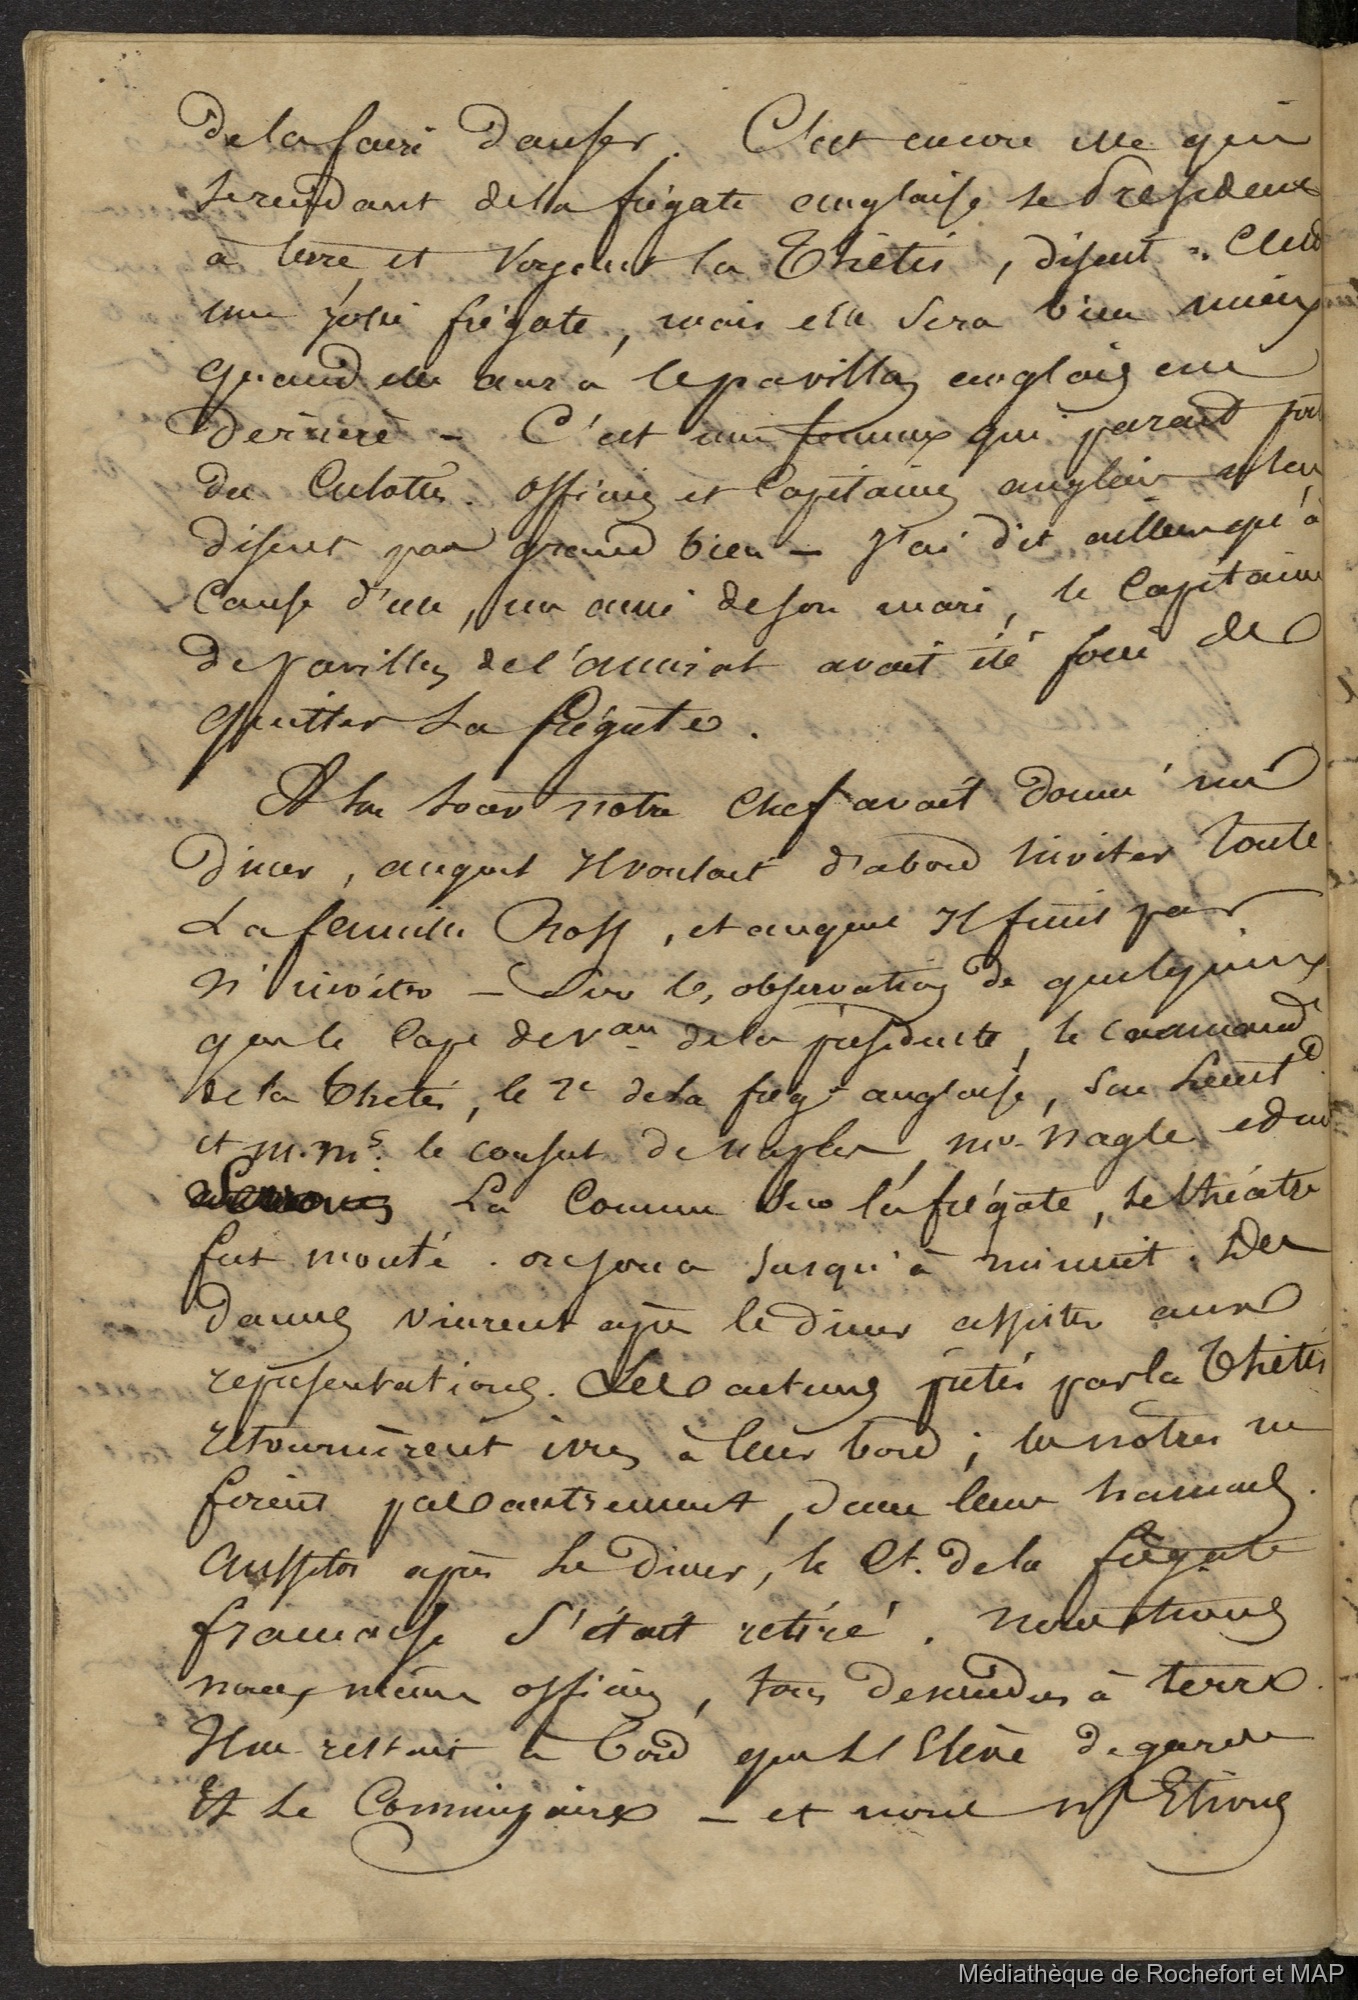 de la faire danser. C'est encore elle qui
se rendant de la frégate anglaise le Président
à terre, et voyant la Thétis, disait : C'est
une jolie frégate, mais elle sera bien mieux
quand elle aura le pavillon anglais
derrière – C'est une femme qui parait
des culottes. officiers et Capitaines anglais n'en
disent pas grand bien – J'ai dit ailleurs qu'à
cause d'elle, un ami de son mari, le Capitaine
de pavillon de l'amiral avait été forcé de
quitter la frégate.
Le soir notre chef avait donné un
diner, auquel il voulait d'abord inviter toute
la famille Ross, et auquel il finit par
n'inviter – sur les observations de quelqu'uns
que le Cape de vau de la présidente, le command
de la Thétis, le 2e de la frégte anglaise, son Lieutt
et m.ms. le consul de naples, mr. Nagle
La Comme sur la frégate, le théâtre
fut monté. on joua jusqu'à minuit. Des
dames vinrent après le diner assister aux
représentations. Les acteurs prêtés par la Thétis
retournèrent ivres à leur bord ; les nôtres ne
furent pas autrement, dans leurs hamacs.
Aussitôt après le diner, le Ct. de la frégate
française s'était retiré. nous étions
nous mêmes officiers, tous descendus à terre.
Il ne restait à bord que l'Elève de garde
Et le Commissaire – et nous n'Etions
Médiathèque de Rochefort et MAP